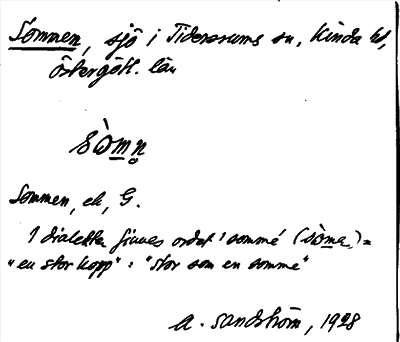 Sommen, sjö i Tidersrums sn, Kinda hd,
Östergötl. län
sòmn̥
Sommen, ek, G.
I dialekten finnes ordet 'sommé (sòme) =
"en stor kopp" : "stor som en somme"
A. Sandström, 1928